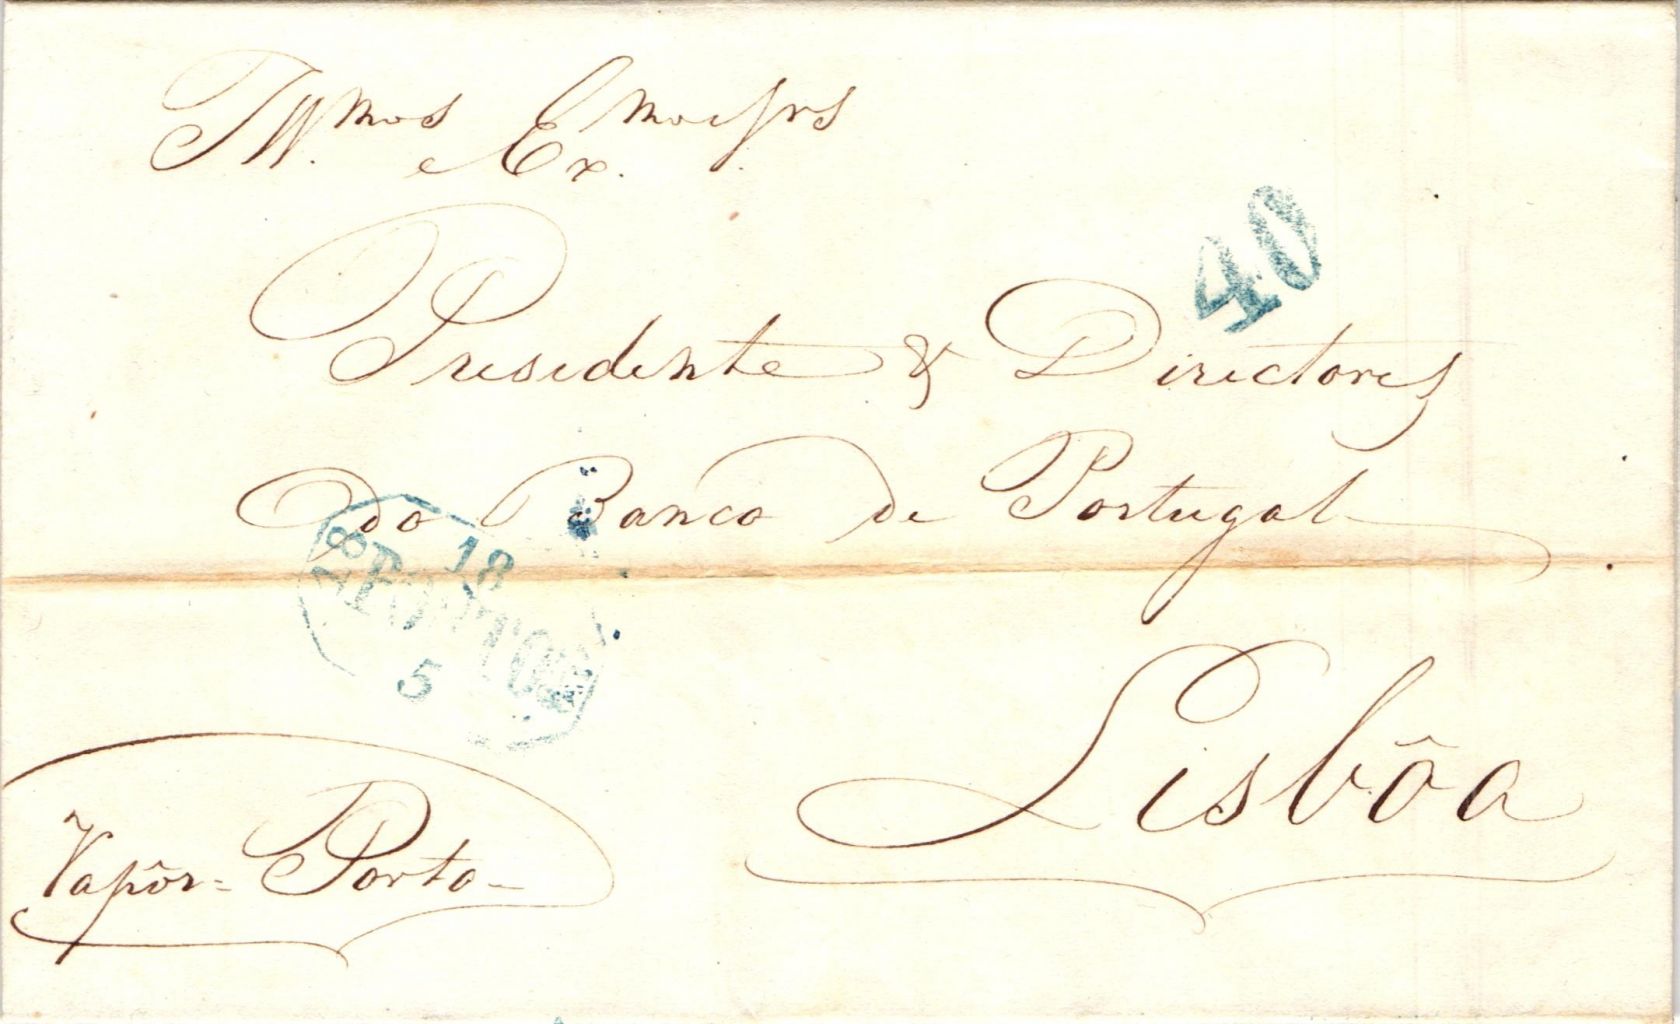 Illmos e Ex.mos Snrs
40
Presidente & Directores
do Banco de Portugal
18
PORTO
5
Lisbôa
Vapôr= Porto